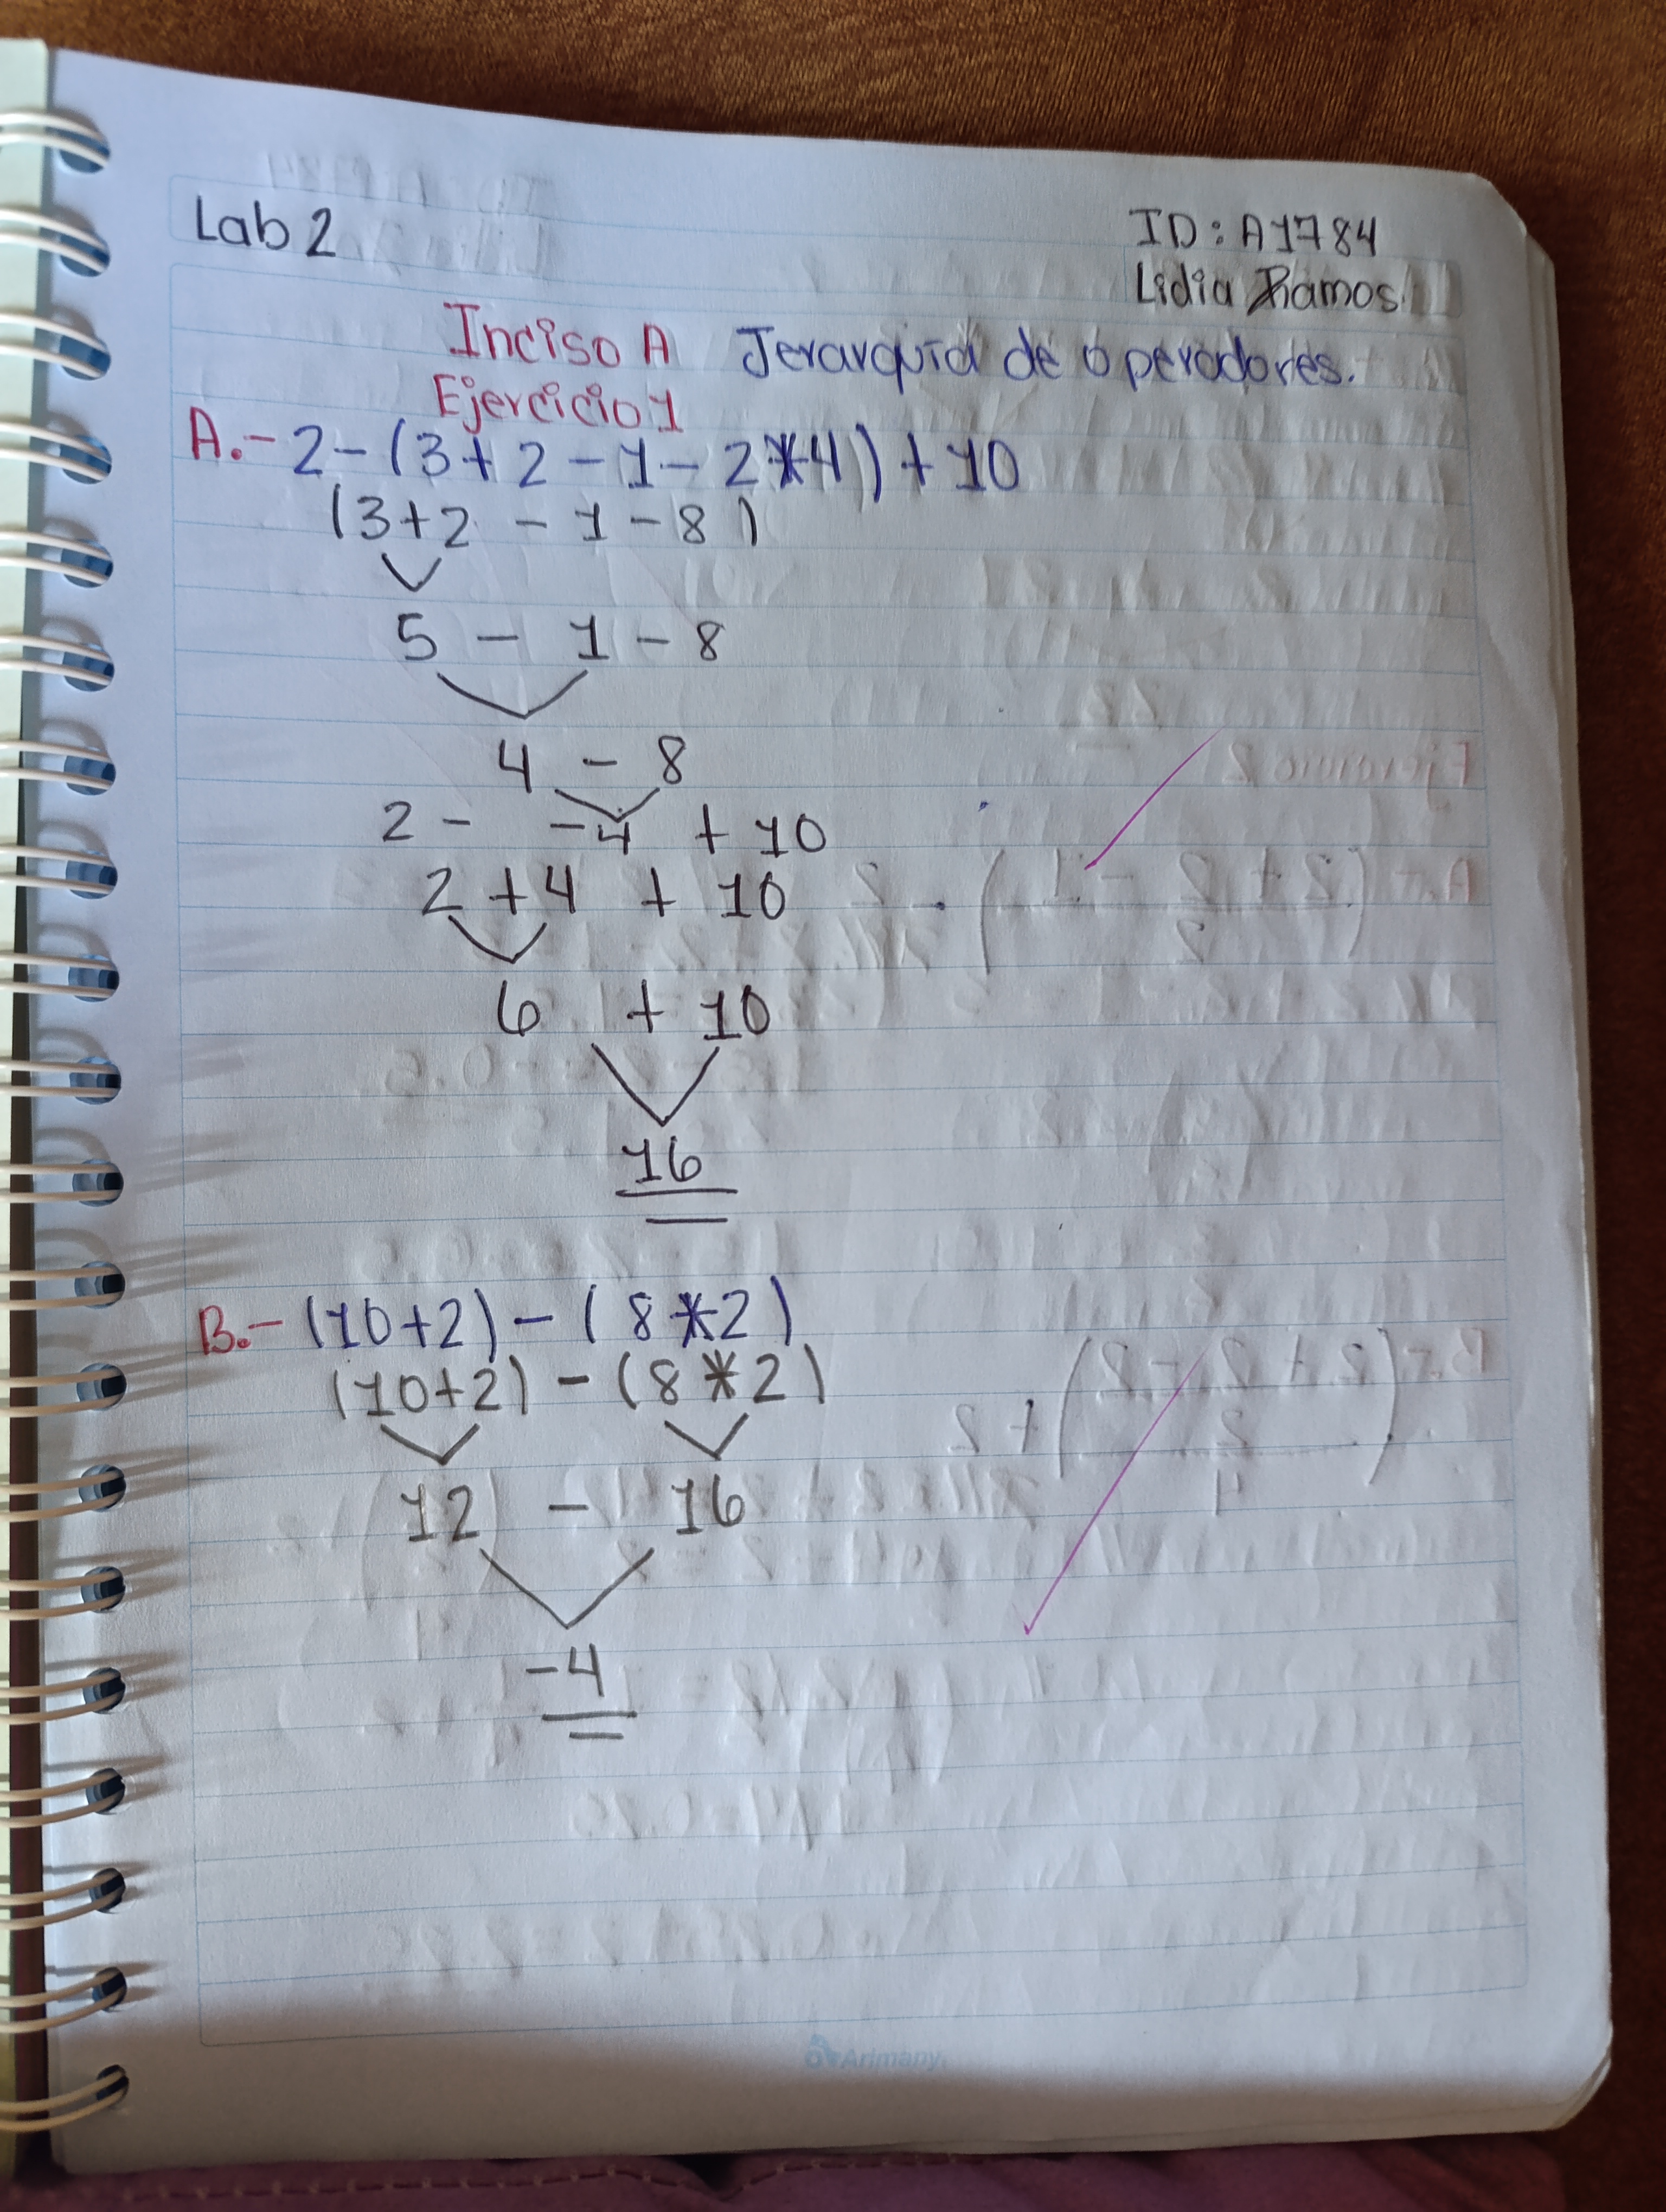 Lab 2
ID: A1784
Lidia Ramos.
Inciso A Jerarquía de operadores.
Ejercicio 1
A.- 2-(3+2-1-2*4)+10
(3+2-1-8)
5 - 1 - 8
4 - 8
2 - -4 + 10
2 + 4 + 10
6 + 10
16
B.- (10+2)-(8*2)
(10+2)-(8*2)
12 - 16
-4
Arimany